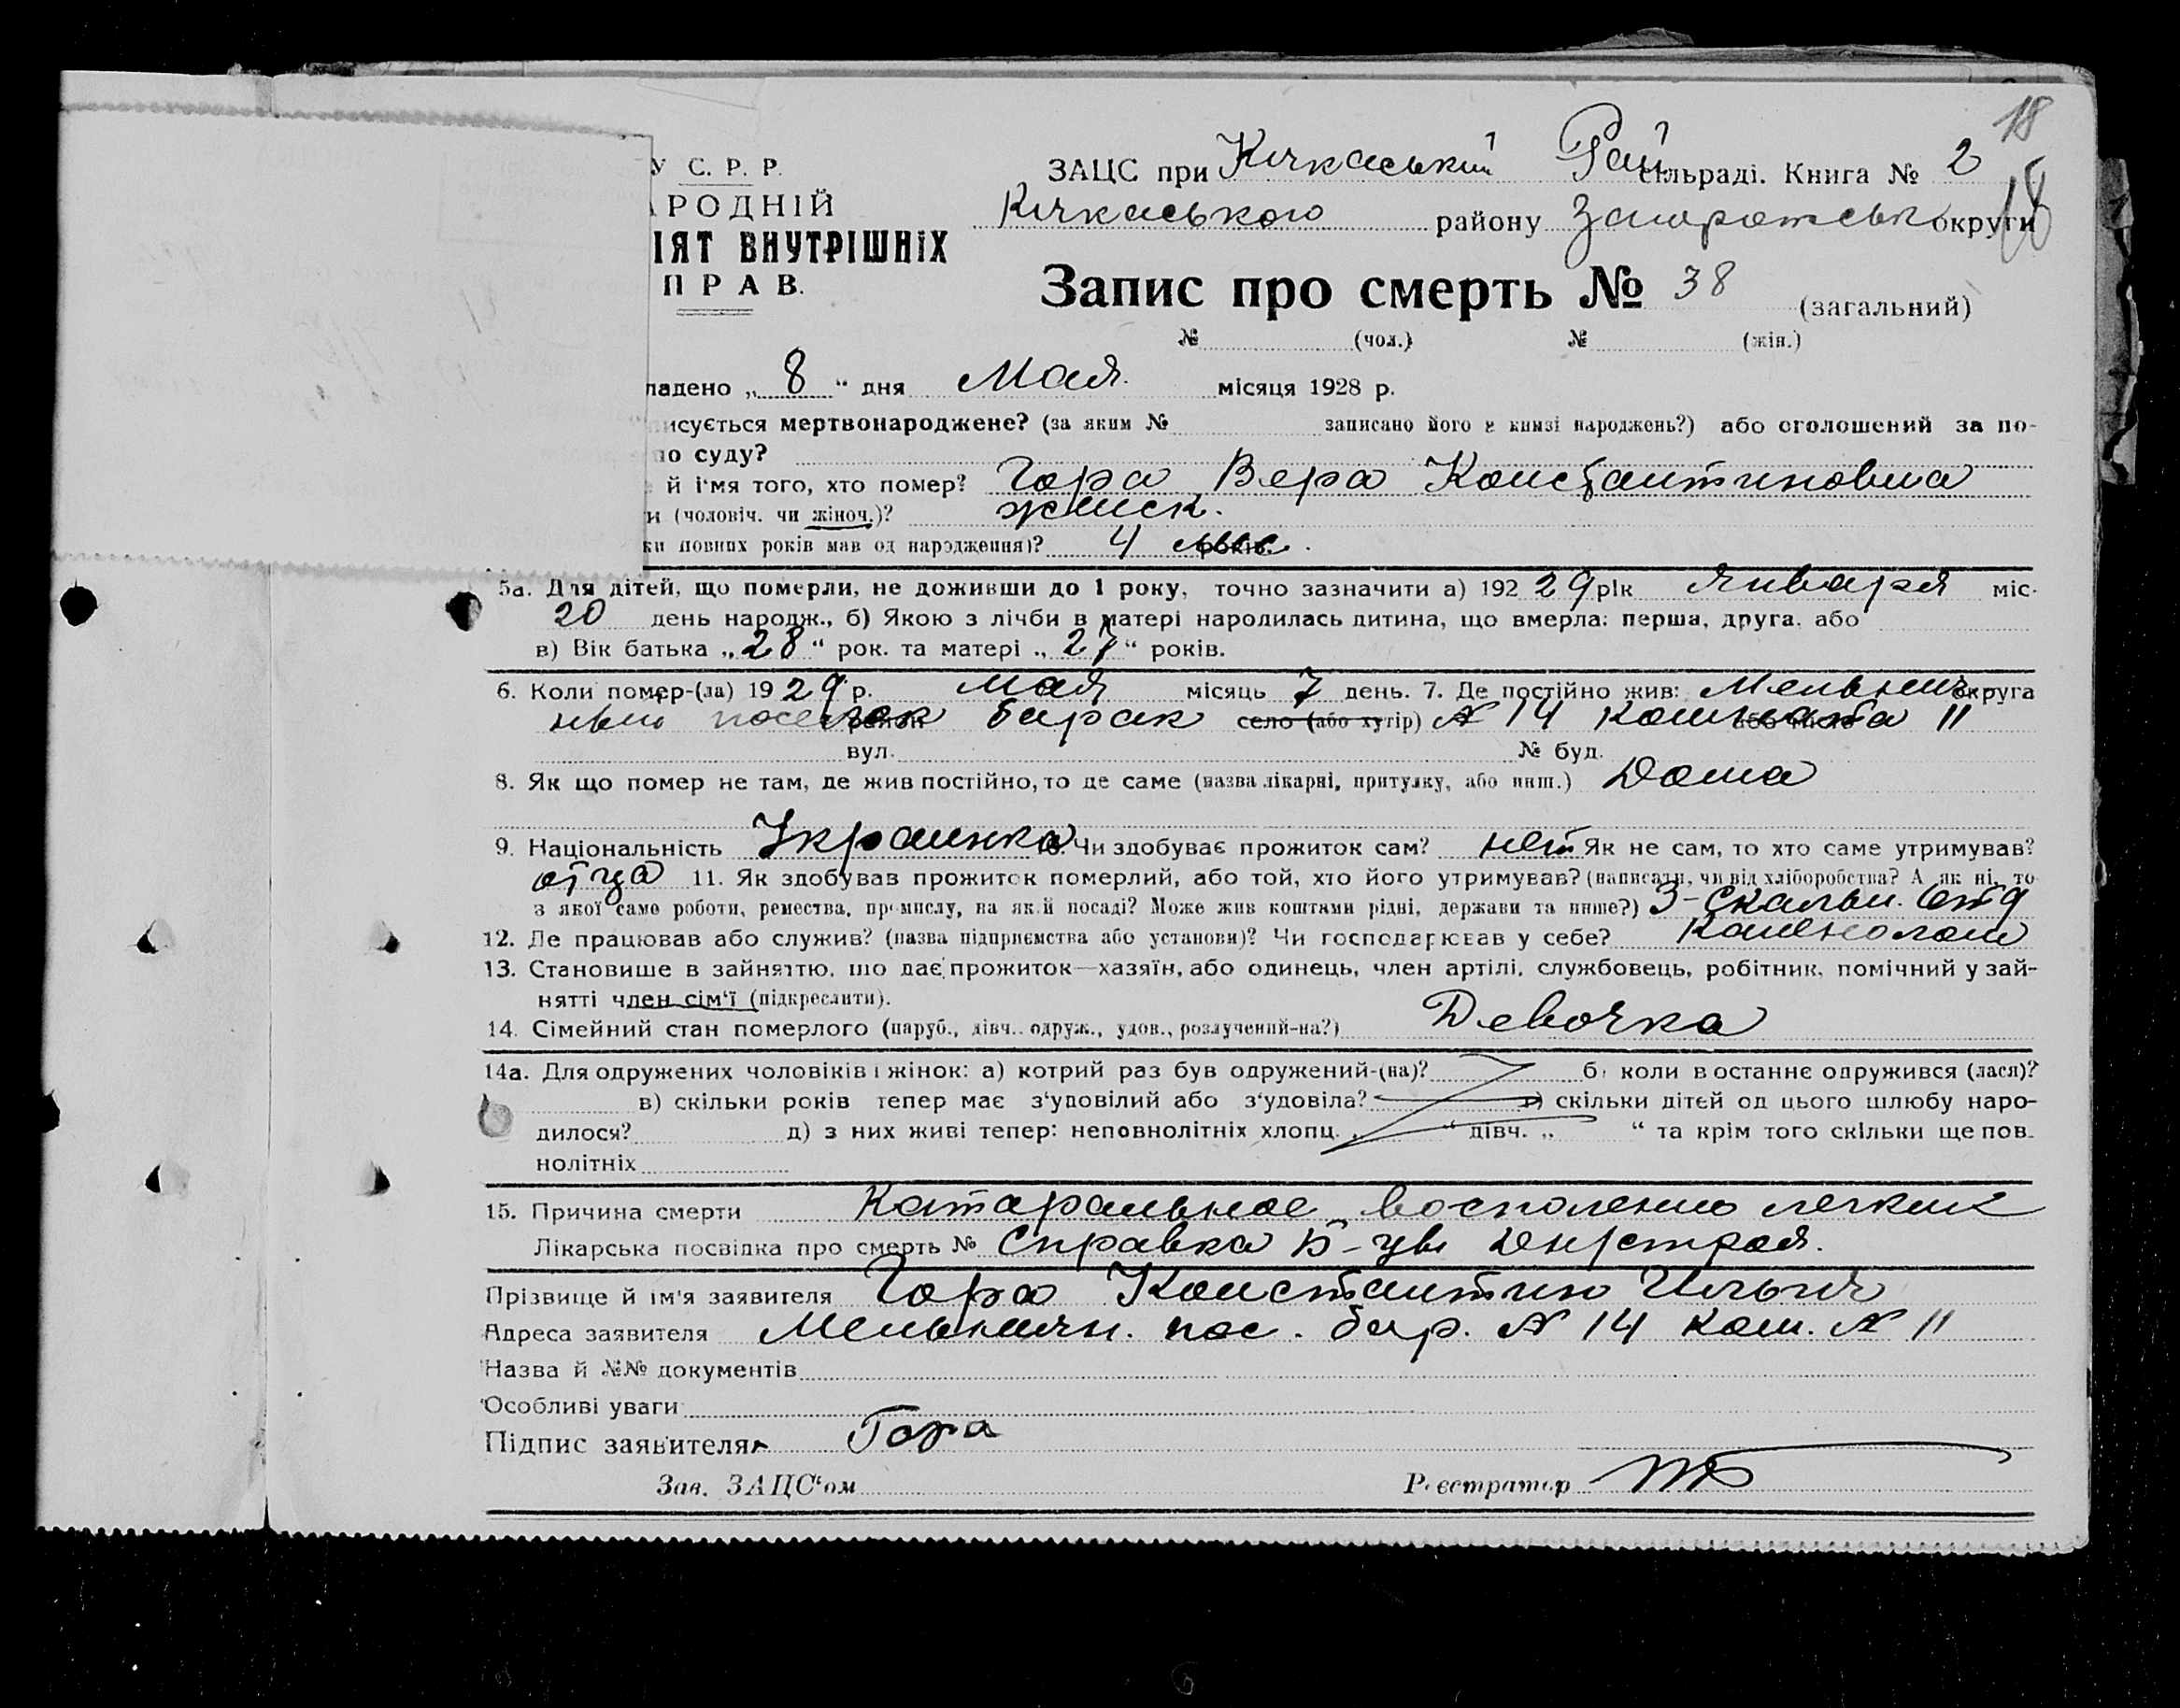 18
У С. Р. Р. ЗАЦС при Кічкаській Рай сільраді. Книга № 2
РОДНІЙ Кічкаського району Запорожськ округи
ІЯТ ВНУТРІШНІХ
ПРАВ. Запис про смерть № 38 (загальний)
№ (чол.) № (жін.)
ладено „ 8 “ дня Мая місяця 1928 р.
исується мертвонароджене? (за яким № записано його в книзі народжень?) або оголошений за по-
о суду?
й ім'я того, хто помер? Гора Вера Константиновна
и (чоловіч. чи жіноч.)? женск.
ки повних років мав од народження)? 4 мес.
5а. Для дітей, що померли, не доживши до 1 року, точно зазначити а) 192 29 рік Января міс.
20 день народж., б) Якою з лічби в матері народилась дитина, що вмерла: перша, друга, або
в) Вік батька „28“ рок. та матері „27“ років.
6. Коли помер-(ла) 1929 р. мая місяць 7 день. 7. Де постійно жив: Мельнич округа
поселок барак село (або хутір) № 14 комната 11
вул. № буд.
8. Як що помер не там, де жив постійно, то де саме (назва лікарні, притулку, або инш.) Дома
9. Національність Украинка 10. Чи здобуває прожиток сам? нет Як не сам, то хто саме утримував?
отца 11. Як здобував прожиток померлий, або той, хто його утримував? (написати, чи від хліборобства? А як ні, то
з якої саме роботи, ремества, промислу, на якій посаді? Може жив коштами рідні, держави та инше?) 3-Скальн. отд
12. Де працював або служив? (назва підприємства або установи)? Чи господарював у себе? Каменолом
13. Становище в зайняттю, що дає прожиток—хазяїн, або одинець, член артілі, службовець, робітник, помічний у зай-
нятті член сім'ї (підкреслити).
14. Сімейний стан померлого (паруб., дівч., одруж., удов., розлучений-на?) Девочка
14а. Для одружених чоловіків і жінок: а) котрий раз був одружений-(на)? б) коли востаннє одружився (лася)?
в) скільки років тепер має з'удовілий або з'удовіла? г) скільки дітей од цього шлюбу наро-
дилося? д) з них живі тепер: неповнолітніх хлопц. „ “ дівч. „ “ та крім того скільки ще пов-
нолітніх
15. Причина смерти Катаральное восполению легких
Лікарська посвідка про смерть № Справка Б-цы Днрстроя.
Прізвище й ім'я заявителя Гора Константин Ильич
Адреса заявителя Мельничн. пос. бар. № 14 ком. № 11
Назва й №№ документів
Особливі уваги
Підпис заявителя Гора
Зав. ЗАЦС'ом Реєстратор